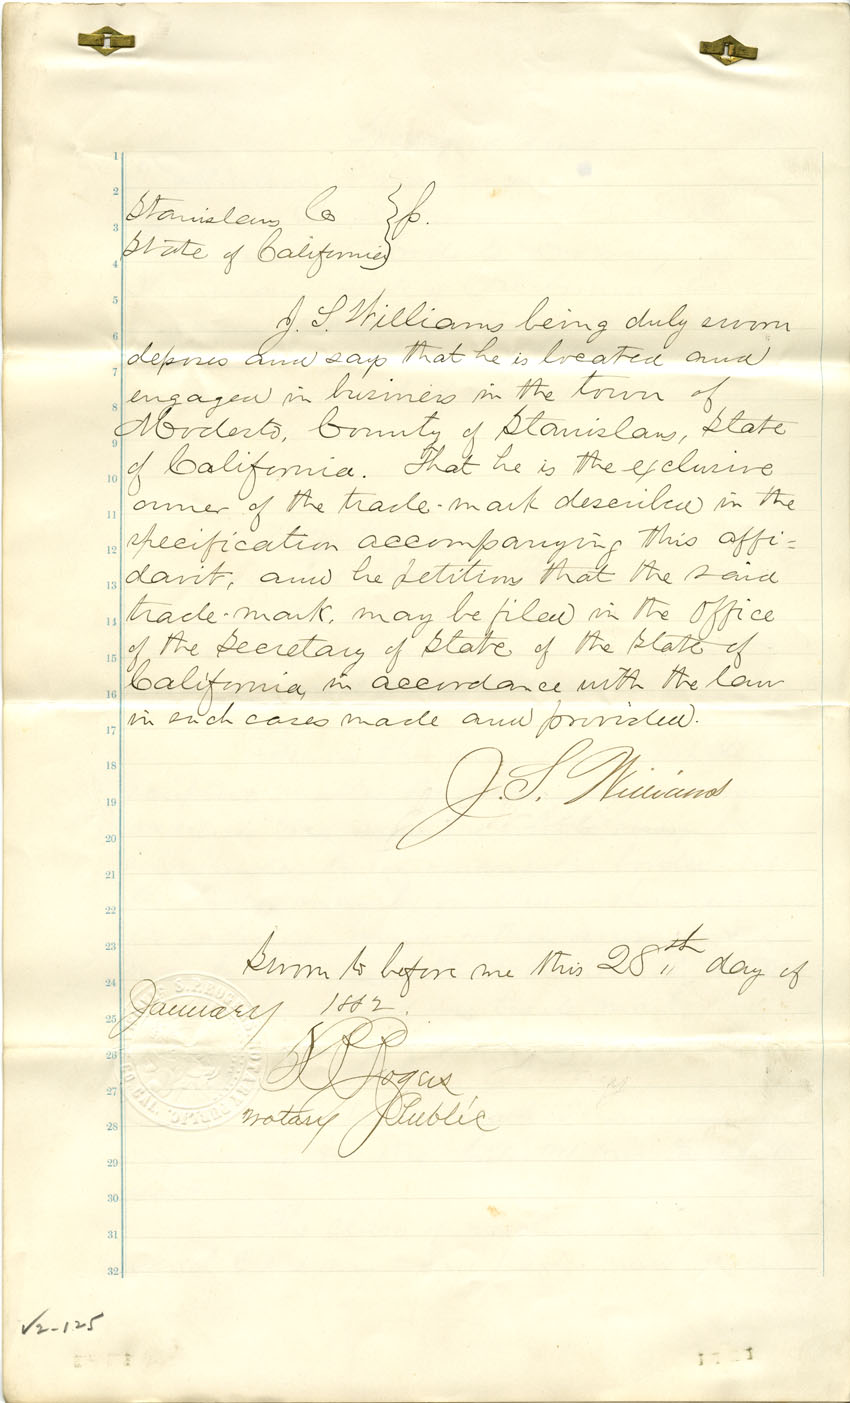 Stanislaus Co } ss.
State of California }
J. S. Williams being duly sworn
deposes and says that he is located and
engaged in business in the town of
Modesto, County of Stanislaus, State
of California. That he is the exclusive
owner of the trade-mark described in the
specification accompanying this affi=
davit, and he petitions that the said
trade-mark, may be filed in the office
of the Secretary of State of the State of
California, in accordance with the law
in such cases made and provided.
J. S. Williams
Sworn to before me this 28th day of
January 1882.
Rogers
Notary Public
√2-125
1
2
3
4
5
6
7
8
9
10
11
12
13
14
15
16
17
18
19
20
21
22
23
24
25
26
27
28
29
30
31
32